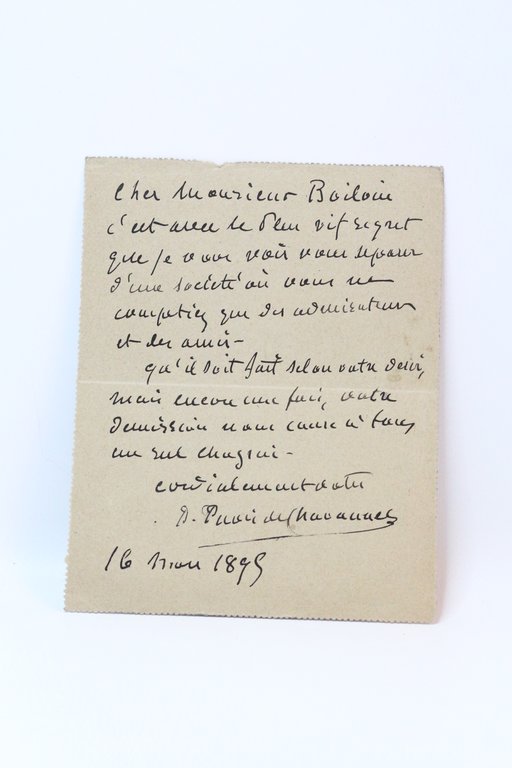 Cher Monsieur Boilvin
c'est avec le plus vif regret
que je vous vois vous séparer
d'une société où vous ne
comptiez que des admirateurs
et des amis –
qu'il soit fait selon votre désir,
mais encore une fois, votre
démission nous cause à tous
un réel chagrin –
cordialement votre
P. Puvis de Chavannes
16 mars 1895